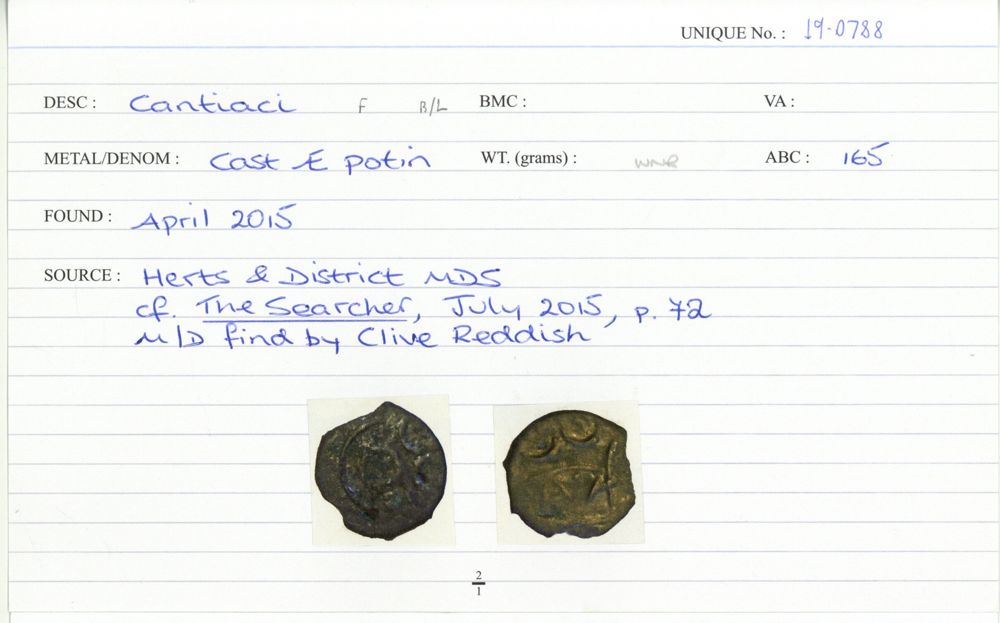 UNIQUE No. : 19-0788
DESC : Cantiaci F B/L BMC : VA :
METAL/DENOM : Cast Æ potin WT. (grams) : WNR ABC : 165
FOUND : April 2015
SOURCE : Herts & District MDS
cf. The Searcher, July 2015, p. 72
M/D find by Clive Reddish
2
1